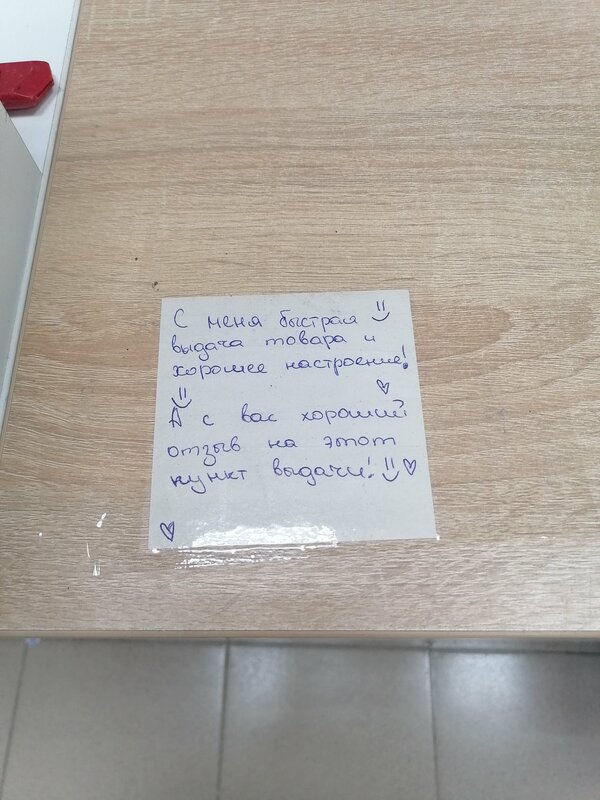 С меня быстрая
выдача товара и
хорошее настроение!
А с вас хороший
отзыв на этот
пункт выдачи!